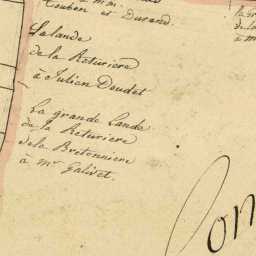 à m.m.
Teuben et Durand
La lande
de la Returiere
à Julien Doudet
La grande Lande
de la Returiere
de la Bretonniere
à mr Galivet.
la Gr
de la
à m
Con